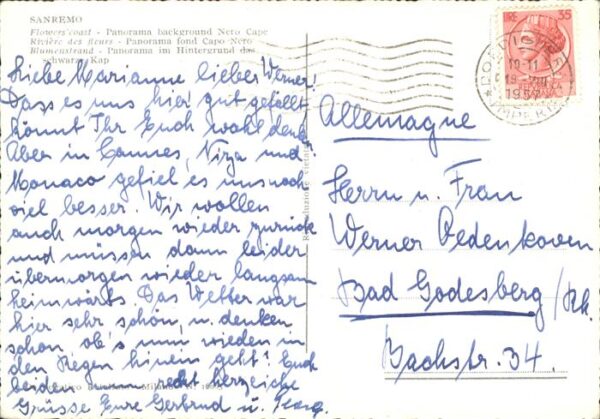 SANREMO
Flowers' coast - Panorama background Nero Cape
Rivière des fleurs - Panorama fond Capo Nero
Blumenstrand - Panorama im Hintergrund das
schwarze Kap
Liebe Marianne lieber Werner!
Dass es uns hier gut gefällt
könnt Ihr Euch wohl denken
Aber in Cannes, Nizza und
Monaco gefiel es uns noch
viel besser. Wir wollen
auch morgen wieder zurück
und müssen dann leider
übermorgen wieder langsam
heimwärts. Das Wetter war
hier sehr schön, u. denken
schon, ob's nun wieder in
den Regen hinein geht! Euch
beiden recht herzliche
Grüsse Eure Gertrud u.
LIRE 35
10-11
Allemagne
Herrn u. Frau
Werner Oedenkoven
Bad Godesberg/Rh
Bachstr. 34.